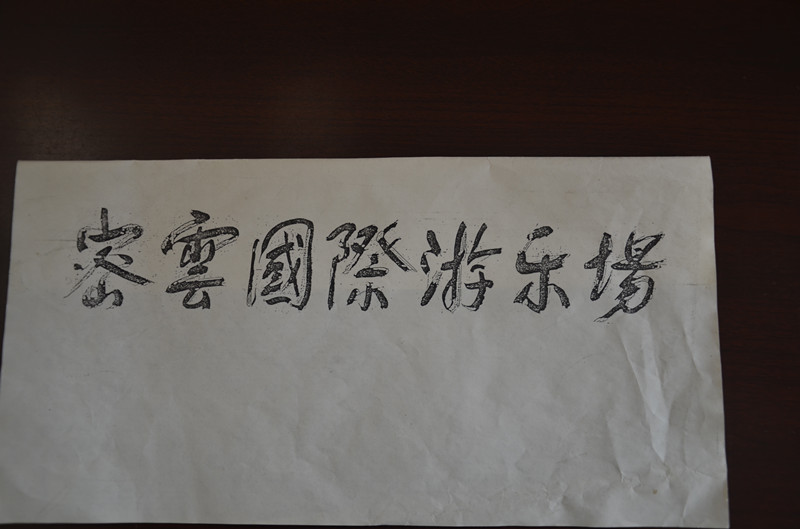 密雲國際游乐場